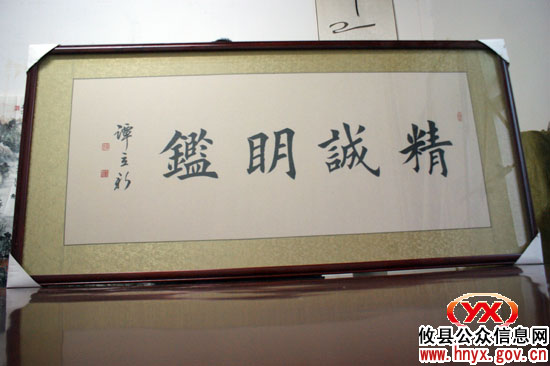 精誠明鑑
譚立新
YX
攸县公众信息网
www.hnyx.gov.cn